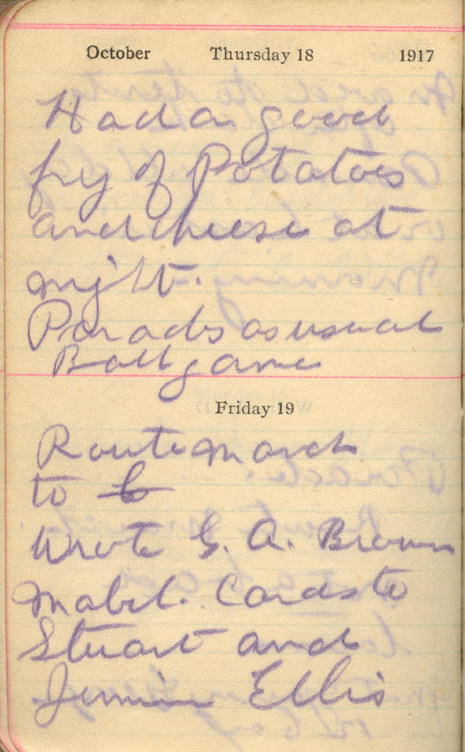 October Thursday 18 1917
Had a good
fry of Potatoes
and cheese at
night.
Parades as usual
Ball game
Friday 19
Route march
to
Wrote G. A. Brown
Mabel. Cards to
Stuart and
Jennie Ellis